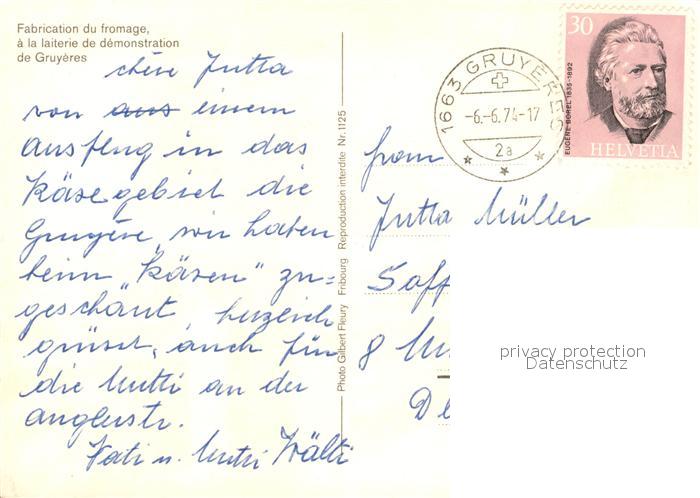 Fabrication du fromage,
à la laiterie de démonstration
de Gruyères
chère Jutta
von aus einem
Ausflug in das
Käsegebiet die
Gruyère, wir haben
beim "Käsen" zu=
geschaut, herzlich
grüsst, auch für
die Mutti an der
Anglerstr.
Vati u. Mutti Wälti
Photo Gilbert Fleury Fribourg Reproduction interdite Nr. 1125
1663 GRUYÈRES
-6.-6.74-17
2a
30
EUGÈNE BOREL 1835-1892
HELVETIA
Jutta Müller
Saff
8 Mü
De
privacy protection
Datenschutz